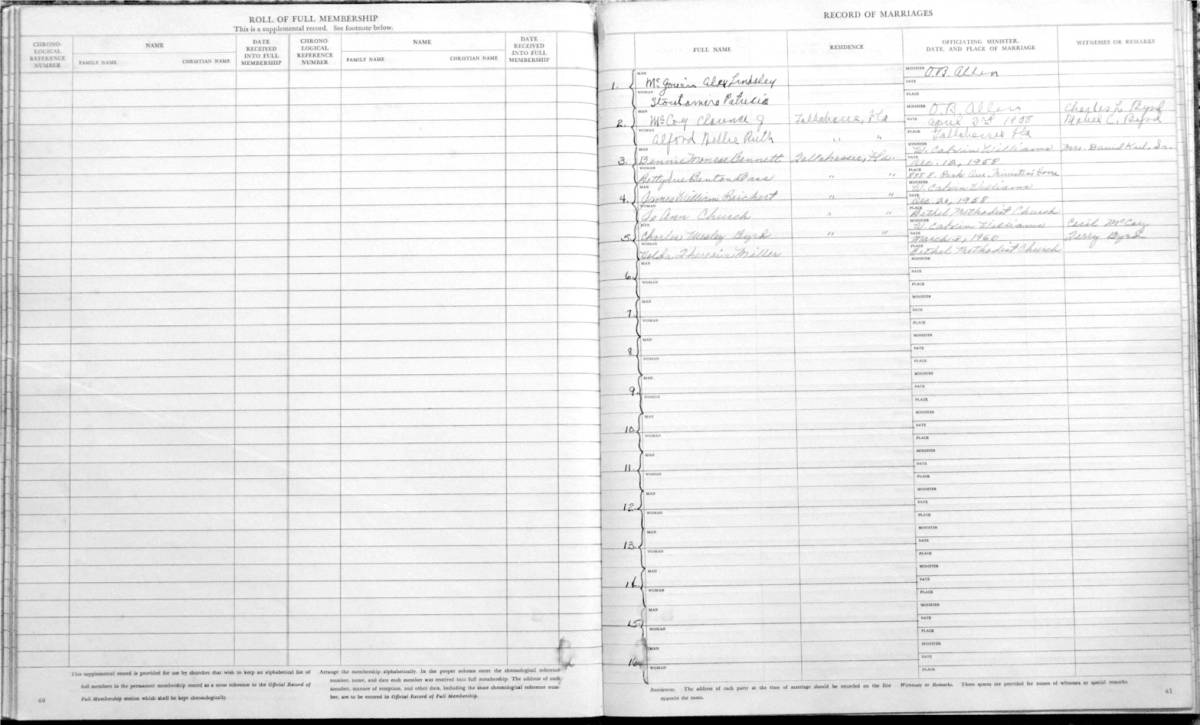 ROLL OF FULL MEMBERSHIP
This is a supplemental record. See footnote below.
CHRONO-
LOGICAL
REFERENCE
NUMBER
NAME
FAMILY NAME CHRISTIAN NAME
DATE
RECEIVED
INTO FULL
MEMBERSHIP
CHRONO-
LOGICAL
REFERENCE
NUMBER
NAME
FAMILY NAME CHRISTIAN NAME
DATE
RECEIVED
INTO FULL
MEMBERSHIP
This supplemental record is provided for use by churches that wish to keep an alphabetical list of
full members in the permanent membership record as a cross reference to the Official Record of
Full Membership section which shall be kept chronologically.
Arrange the membership alphabetically. In the proper column enter the chronological reference
number, name, and date each member was received into full membership. The address of each
member, manner of reception, and other data, including the same chronological reference num-
ber, are to be entered in Official Record of Full Membership.
60
RECORD OF MARRIAGES
FULL NAME
RESIDENCE
OFFICIATING MINISTER,
DATE, AND PLACE OF MARRIAGE
WITNESSES OR REMARKS
1. MAN Alex Lindsley MINISTER O.B. Allen
WOMAN Stoutamere Patricia DATE
PLACE
2. MAN McCoy Clarence J Tallahassee, Fla MINISTER O.B. Allen Charles L. Byrd
WOMAN Alford Nellie Ruth " " DATE April Mabel C. Byrd
PLACE Tallahassee Fla
3. MAN Bennett Tallahassee, Fla. MINISTER W. Calvin Williams Mrs. David
WOMAN Betty Sue Benton " " DATE Dec. 12, 1958
PLACE Park Ave.
4. MAN James William Reichert " " MINISTER W. Calvin Williams
WOMAN Jo Ann Church " " DATE Dec. 21, 1958
PLACE Bethel Methodist Church
5. MAN Charles Wesley Byrd " " MINISTER W. Calvin Williams Cecil McCoy
WOMAN Miller DATE March 2, 1960 Terry Byrd
PLACE Bethel Methodist Church
6. MAN MINISTER
WOMAN DATE
PLACE
7. MAN MINISTER
WOMAN DATE
PLACE
8. MAN MINISTER
WOMAN DATE
PLACE
9. MAN MINISTER
WOMAN DATE
PLACE
10. MAN MINISTER
WOMAN DATE
PLACE
11. MAN MINISTER
WOMAN DATE
PLACE
12. MAN MINISTER
WOMAN DATE
PLACE
13. MAN MINISTER
WOMAN DATE
PLACE
14. MAN MINISTER
WOMAN DATE
PLACE
15. MAN MINISTER
WOMAN DATE
PLACE
16. MAN MINISTER
WOMAN DATE
PLACE
Residence. The address of each party at the time of marriage should be recorded on the line
opposite the name.
Witnesses or Remarks. These spaces are provided for names of witnesses or special remarks.
61